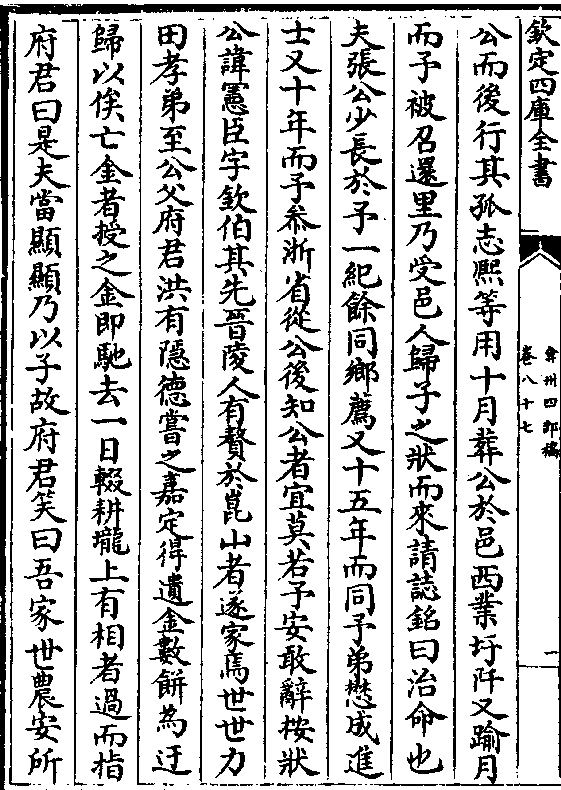 欽定四庫全書
弇州四部稿
卷八十七
一
公而後行其孤志熙等用十月葬公於邑西業圩阡又踰月
而予被召還里乃受邑人歸子之狀而來請誌銘曰治命也
夫張公少長於予一紀餘同鄉薦又十五年而同予弟懋成進
士又十年而予叅浙省從公後知公者宜莫若予安敢辭桉狀
公諱憲臣字欽伯其先晉陵人有贅於崑山者遂家焉世世力
田孝弟至公父府君洪有隱德嘗之嘉定得遺金數餅為迂
歸以俟亡金者授之金即馳去一日輟耕壠上有相者過而指
府君曰是夫當顯顯乃以子故府君笑曰吾家世農安所